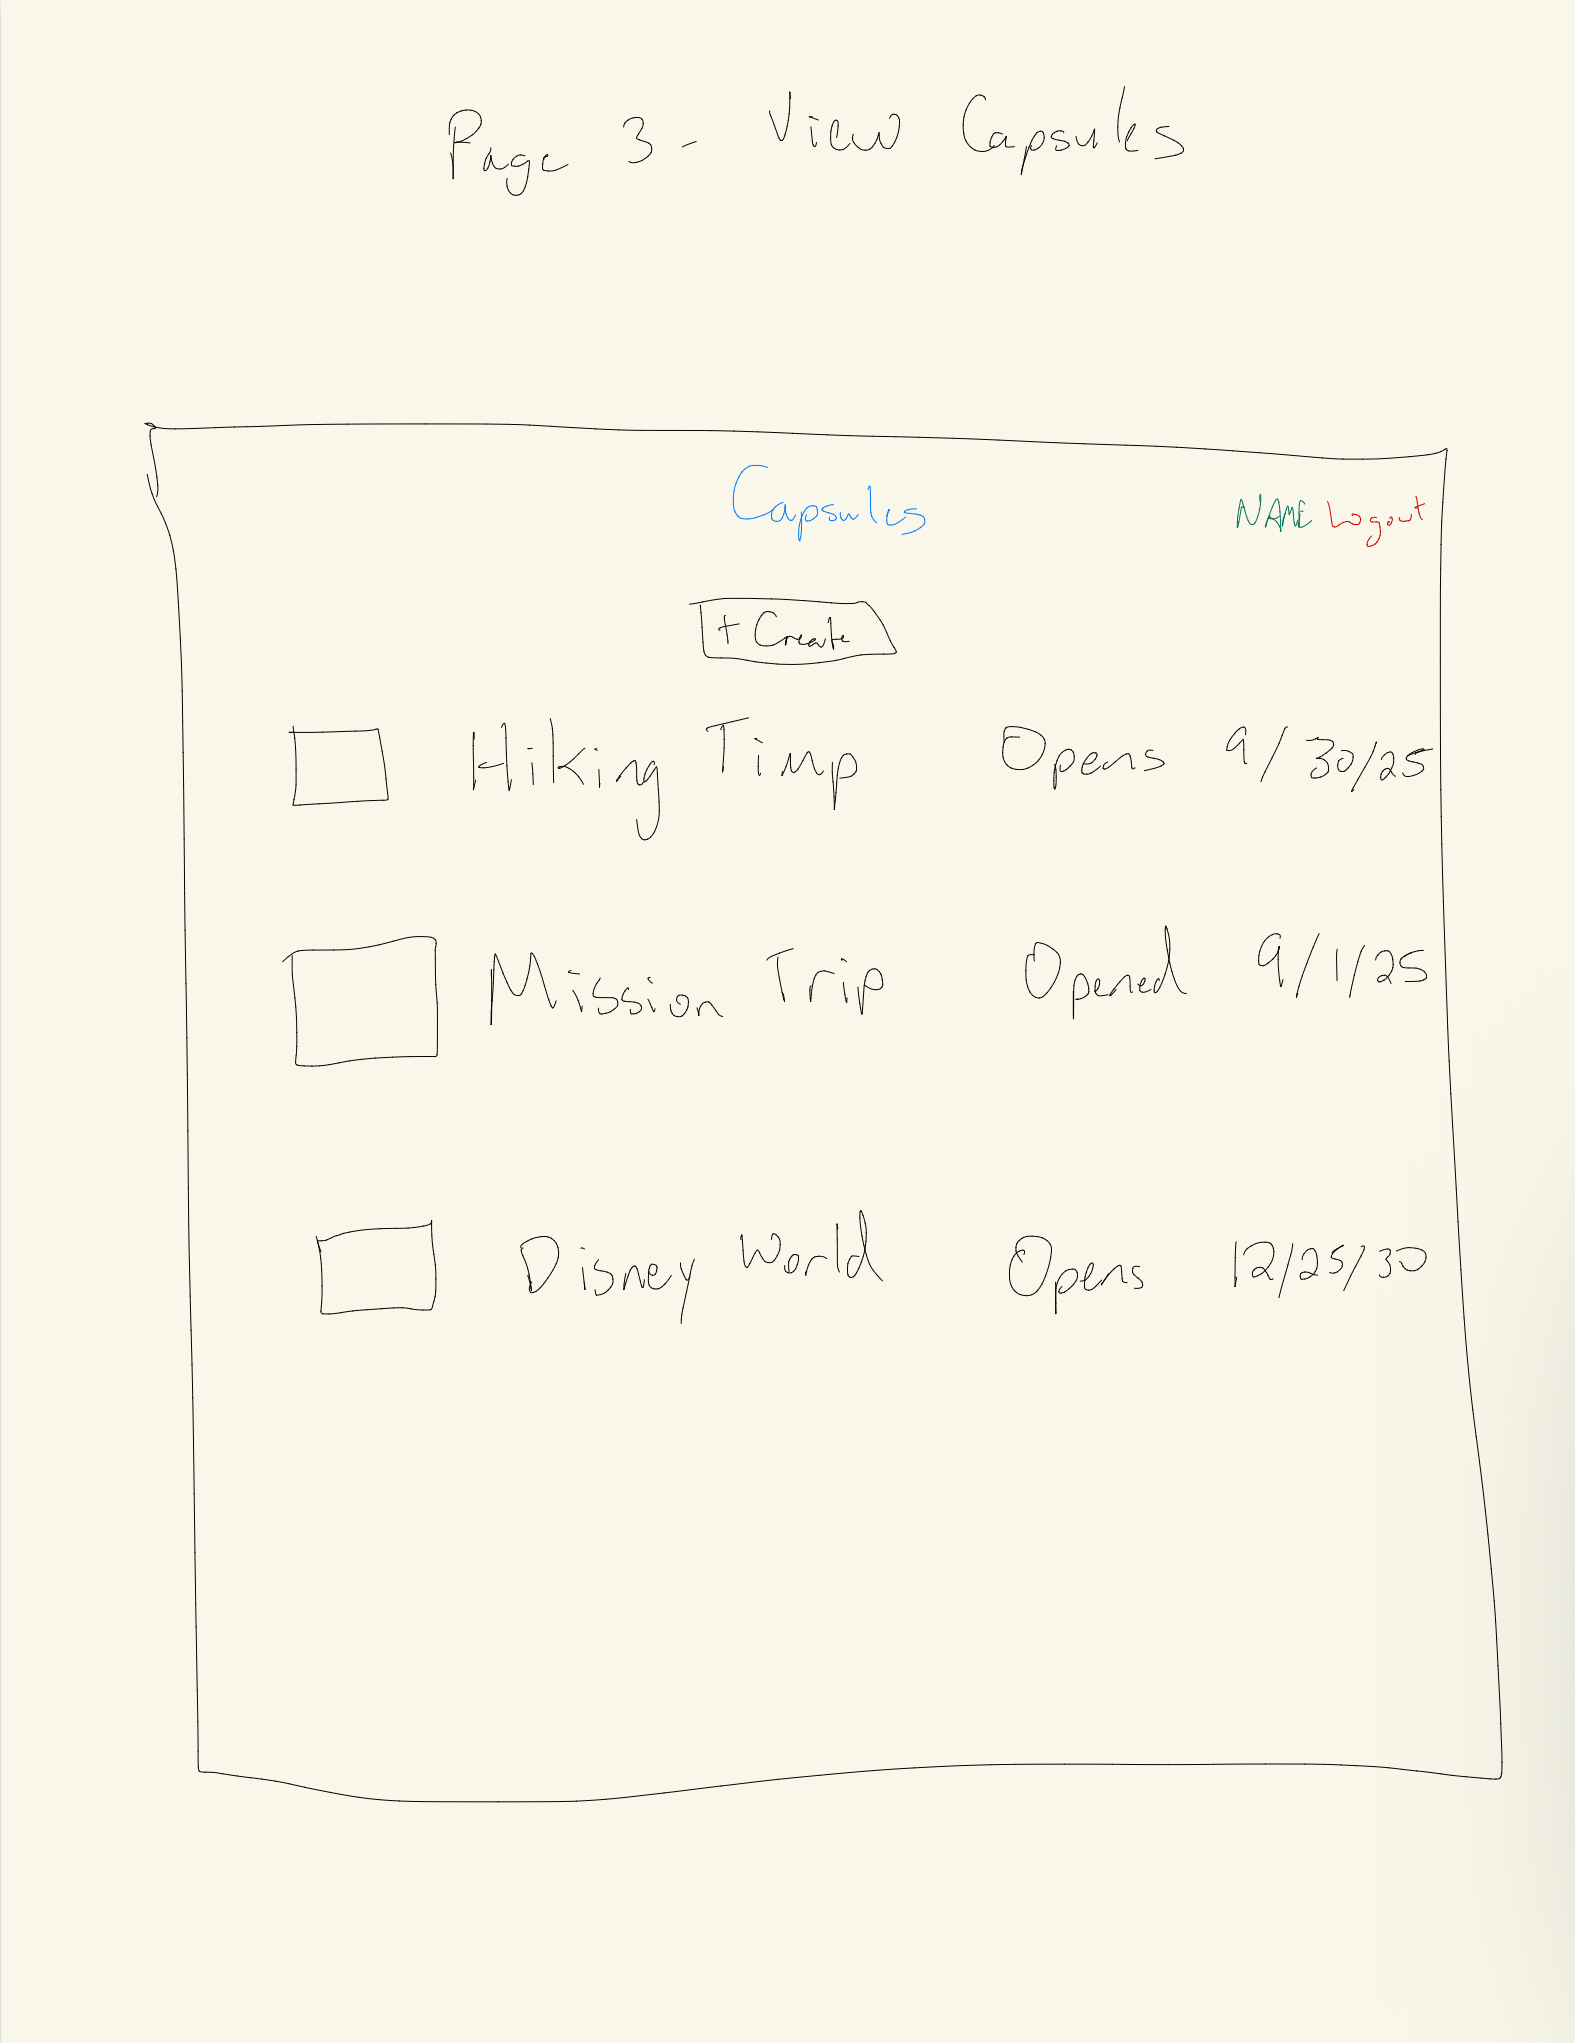 Page 3 - View Capsules
Capsules
NAME Logout
+ Create
Hiking Timp Opens 9/30/25
Mission Trip Opened 9/1/25
Disney World Opens 12/25/30